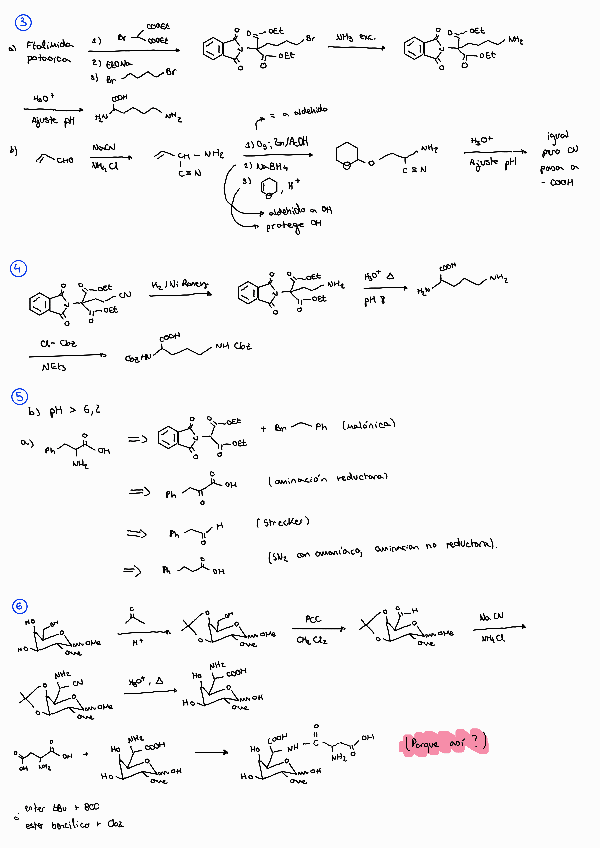 3
a) Ftalimida potásica
1) Br COOEt COOEt
2) EtONa
3) Br Br
O OEt Br O OEt
NH3 exc.
O OEt NH2 O OEt
H3O+
Ajuste pH
COOH H2N NH2
b) CHO
NaCN
NH4Cl
CH - NH2
C≡N
→ = a aldehído
1) O3; Zn/AcOH
2) NaBH4
3) O , H+
→ aldehído a OH
→ protege OH
O O NH2
C≡N
H3O+
Ajuste pH
igual
pero CN
pasa a
- COOH
4
O OEt CN O OEt
H2 / Ni Raney
O OEt NH2 O OEt
H3O+ Δ
pH 7
COOH H2N NH2
Cl- Cbz
NEt3
COOH CbzHN NH Cbz
5
b) pH > 6,2
a) Ph O OH NH2
⇒ O OEt O OEt + Br Ph (malónica)
⇒ Ph O OH O (aminación reductora)
⇒ Ph H O (Strecker)
⇒ Ph O OH (SN2 con amoníaco, aminación no reductora).
6
HO OH HO O OMe OMe
O
H+
O O OH O OMe OMe
PCC
CH2Cl2
O O O H O OMe OMe
NaCN
NH4Cl
O O NH2 CN O OMe OMe
H3O+, Δ
NH2 COOH HO HO O OH OMe
O OH O OH NH2 + NH2 COOH HO HO O OH OMe
COOH NH O O OH NH2 HO HO O OH OMe
(Porque así ?)
c) ester tBu + BOC
ester bencílico + Cbz